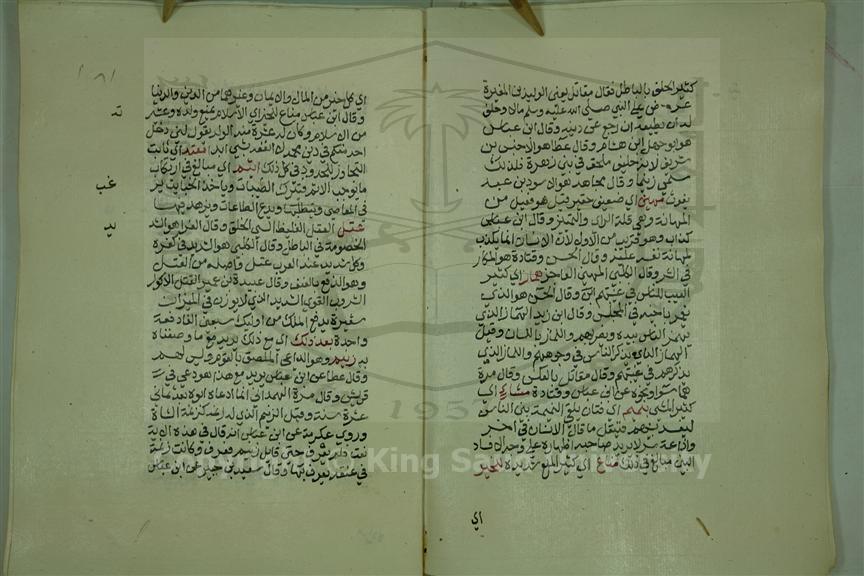 كثير الحلف بالباطل فقال مقاتل يعني الوليد بن المغيرة
عرض على النبي صلى الله عليه وسلم مالا وحلف
له ان يعطيه ان رجع عن دينه وقال ابن عباس
هو ابو جهل بن هشام وقال عطا هو الاخنس بن
شريق لانه حليف ملحق في بني زهرة فلذلك
سمي زنيما وقال مجاهد هو الاسود بن عبد
يغوث مهين اي ضعيف حقير قيل هو فعيل من
المهانة وهي قلة الراي والتمييز وقال ابن عباس
كذاب وهو قريب من الاول لان الانسان انما يكذب
لمهانة نفسه عليه وقال الحسن وقتادة هو المكثار
في الشر وقال الكلبي المهين الفاجر هماز اي كثير
العيب للناس في غيبتهم وقال الحسن هو الذي
يغمز باخيه في المجلس وقال ابن زيد الهماز الذي
يهمز الناس بيده ويضربهم واللماز باللسان وقيل
الهماز الذي يذكر الناس في وجوههم واللماز الذي
يذكرهم في غيبتهم وقال مقاتل بالعكس وقال مرة
هما سواء ونحوه عن ابن عباس وقتادة مشاء اي
كثير المشي بنميم اي فتان يلقي النميمة بين الناس
ليفسد بينهم فينقل ما قاله الانسان في اخر
واذاعة سر لا يريد صاحبه اظهاره على وجه الافساد
البين مبالغ في ذلك مناع اي كثير المنع شديده للخير
اي
١٨١
اي كل خير من المال والايمان وغيرهما من الدين والدنيا
وقال ابن عباس مناع للخير اي الاسلام يمنع ولده وعشيرته
من الاسلام وكان له عشرة من الولد يقول لئن دخل
احد منكم في دين محمد لا انفعه بشي ابدا معتد اي ثابت
التجاوز للحدود في كل ذلك اثيم اي مبالغ في ارتكاب
ما يوجب الاثم فيترك الطيبات وياخذ الخبايث يرغب
في المعاصي ويتطلبها ويدع الطاعات ويزهد فيها
عتل العتل الغليظ الجافي وقال الفرا هو الشديد
الخصومة في الباطل وقال الكلبي هو الشديد في كفره
وكل شديد عند العرب عتل واصله من العتل
وهو الدفع بالعنف وقال عبيدة بن عمير العتل الاكول
الشروب القوي الشديد الذي لا يوزن في الميزان
شعيرة يدفع الملك من اوليك سبعين الفا دفعة
واحدة بعد ذلك اي مع ذلك يريد مع ما وصفناه
به زنيم وهو الداعي الملصق بالقوم وليس لهم
وقال عطا عن ابن عباس يريد مع هذا هو دعي في
قريش وقال مرة الهمداني انما ادعاه ابوه بعد ثماني
عشرة سنة وقيل الزنيم الذي له زنمة كزنمة الشاة
وروى عكرمة عن ابن عباس انه قال في هذه الاية
نعت فلم يعرف حتى قيل زنيم فعرف وكانت له زنمة
في عنقه يعرف بها وقال سعيد بن جبير عن ابن عباس
Copyright © King Saud University
1957